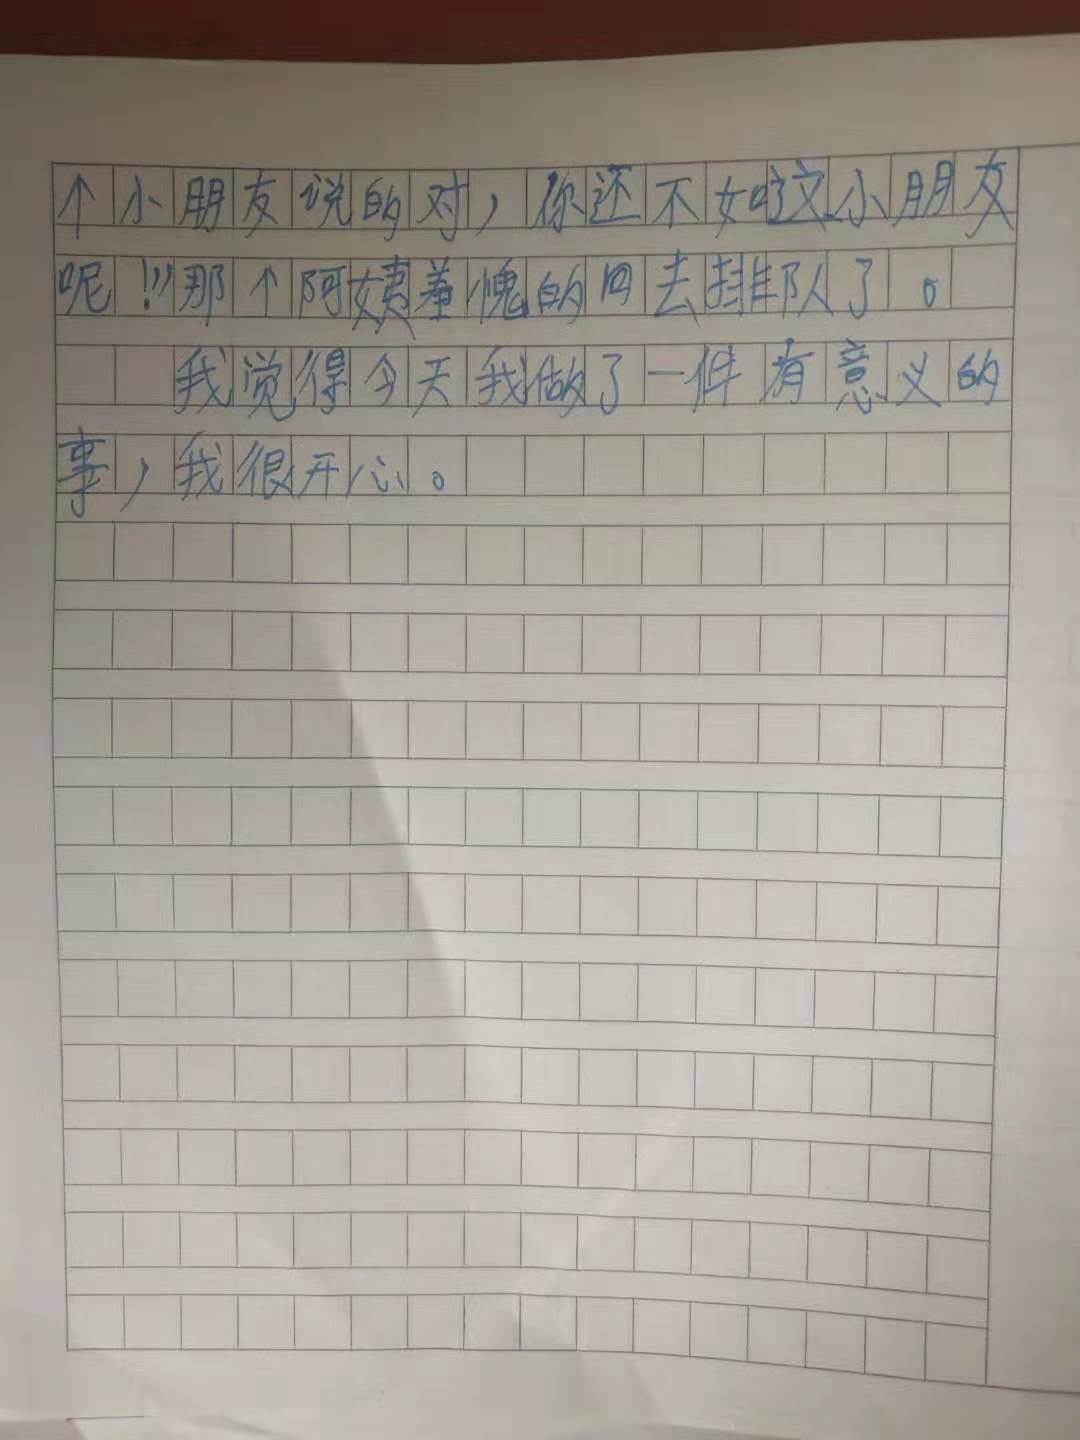 个小朋友说的对，你还不如这小朋友
呢！”那个阿姨羞愧的回去排队了。
我觉得今天我做了一件有意义的
事，我很开心。